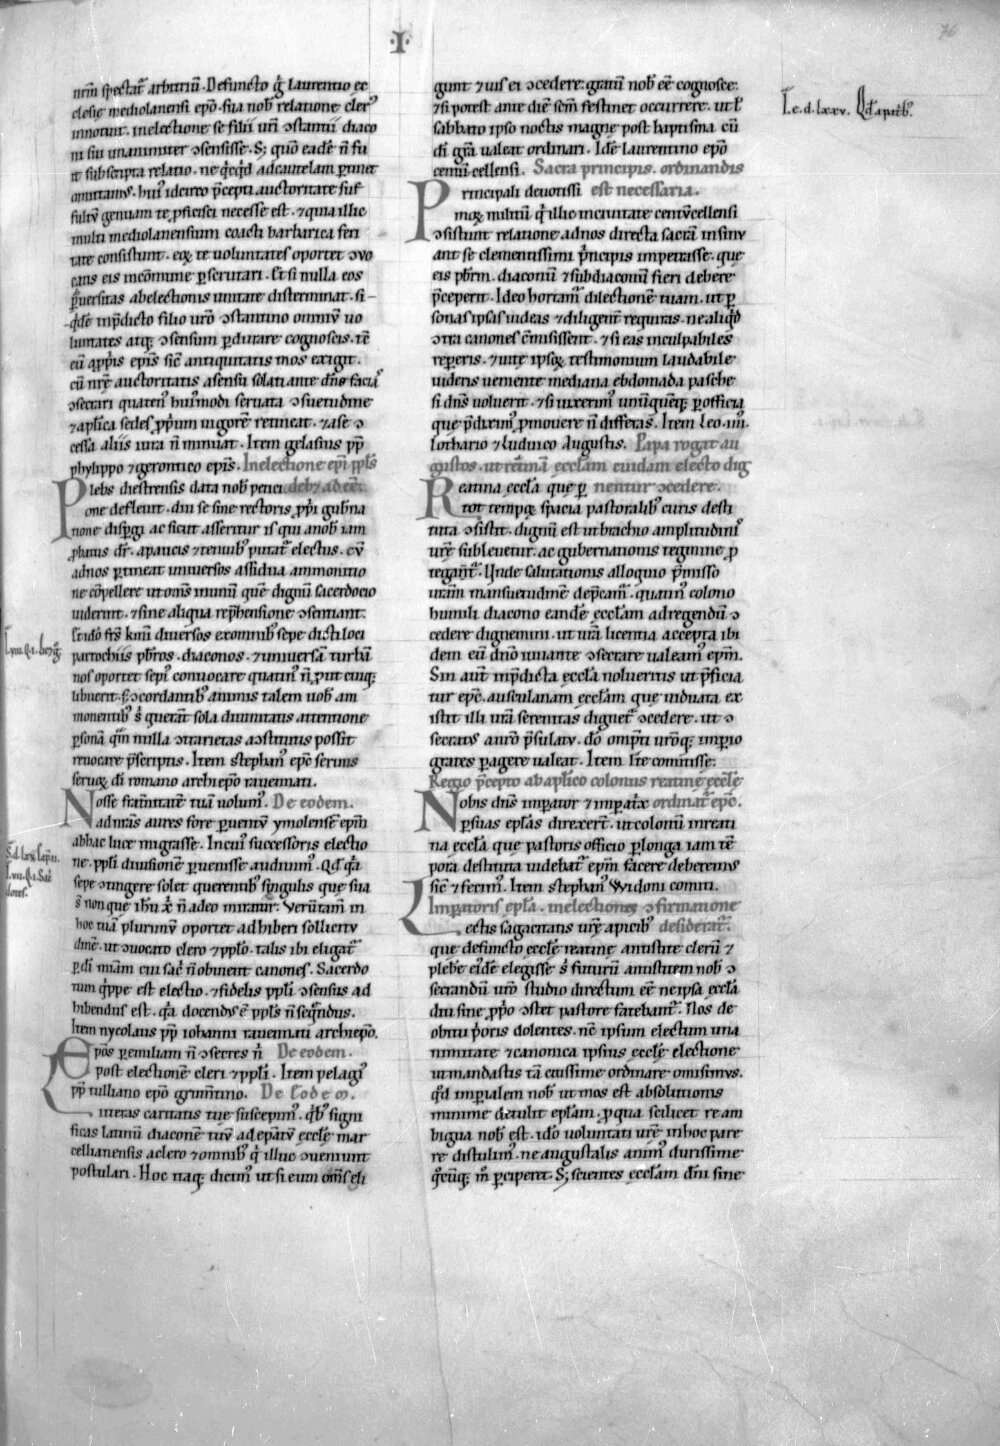 ·I·
76
nrm̄ spectat᷑ arbitriū. Defuncto g̊ laurentio ec
clesie mediolanensi ep̄o. sua nob̄ relatione cler᷒
innotuit. inelectione se filii ur̄i ɔstantii diaco
ni sui unanimiter ɔsensisse. S; quō eadē n̄ fu
it subscripta relatio. ne q̇cq̇d adcautelam ꝑtinet
omittam᷒. hui᷒ idcirco p̄cepti auctoritate suf
fultū genuam te ꝓficisci necesse est. ⁊quia illic
multi mediolanensium coacti barbarica feri
tate consistunt. eoꝝ te uoluntates oportet ɔuo
catis eis incōmune ꝑscrutari. Et si nulla eos
ꝑuersitas abelectionis unitate disterminat. si-
q̇dē inp̄dicto filio ur̄o ɔstantino omniū uo
luntates atq; ɔsensum ꝑdurare cognoscis. tē
eū aꝓp̄iis ep̄is sic̄ antiquitatis mos exigit.
cū nr̄ę auctoritatis asensu solatiante dn̄o facia᷒
ɔsecrari quaten᷒ hui᷒modi seruata ɔsuetudine
⁊ap̄lica sedes ꝓp̄ium uigorē retineat. ⁊ase ɔ
cessa aliis iura n̄ minuat. Item gelasius pp̄
phylippo ⁊gerontico ep̄is. Inelectione ep̄i ppl̄s
Plebs diestrensis data nob̄ petici deb⁊ adēē.
one defleuit. diu se sine rectoris ꝓp̄i gub̄na
tione disp̄gi ac sicut asseritur is qui anob̄ iam
ꝓbatus d̄r. apaucis ⁊tenuib᷒ putat᷑ electus. cū
adnos ꝑtineat uniuersos assidua ammonitio
ne cōpellere utom̄s inunū quē dignū sacerdocio
uiderint. ⁊sine aliqua rep̄hensione ɔsentiant.
Et idō frs̄ kmi diuersos exomnib᷒ sepe dicti loci
parrochiis pb̄ros. diaconos. ⁊uniuersā turbā
uos oportet sepi᷒ conuocare quatin᷒ n̄ ꝓut cuiq;
libuerit. s; ɔcordantib᷒ animis talem uob̄ am
monentib᷒ s̄ querāt sola diuinitatis attentione
ꝑsonā qm̄ nulla ɔtrarietas aɔstitutis possit
reuocare p̄scriptis. Item stephan᷒ ep̄c seruus
seruoꝝ dī romano archiep̄o rauennati.
Nosse frat̄nitatē tuā uolum᷒. De eodem.
adnr̄as aures fore ꝑuentū ymolensē ep̄m
abhac luce migrasse. Incui᷒ successoris electio
ne. ppl̄i diuisionē ꝑuenisse audiuim᷒. Qd̄ q̇a
sepe ɔtingere solet querentib᷒ singulis que sua
s̄ non que ih̄u x̄ n̄ adeo miram᷒. Verūtam̄ in
hoc tuā plurimū oportet adhiberi sollicitu
dinē. ut ɔuocato clero ⁊ppl̄o. talis ibi eligat᷑
ꝑ dī mīam cui sac̄ n̄ obuient canones. Sacerdo
tum q̇ppe est electio. ⁊fidelis ppl̄i ɔsensus ad
hibendus est. q̇a docend᷒ ē ppl̄s n̄ seq̄ndus.
Item nycolaus pp̄ iohanni rauennati archiep̄o.
Ep̄os ꝑemiliam n̄ ɔsecres n̄ De eodem.
post electionē cleri ⁊ppl̄i. Item pelagi᷒
pp̄ iulliano ep̄o grum̄tino. De Eode m.
Litteras caritatis tue suscepim᷒. q̇b᷒ signi
ficas latinū diaconē tuū adep̄atū eccl̄ę mar
cellianensis aclero ⁊omnib᷒ q̇ illuc ɔueniunt
postulari. Hoc itaq; dicim᷒ ut si eum om̄s eli
gunt ⁊uis ei ɔcedere. gratū nob̄ eē cognosce.
⁊si potest ante diē sc̄m festinet occurrere. ut ł
sabbato ipso noctis magne post baptisma cū
dī gr̄a ualeat ordinari. Idē laurentino ep̄o
centū cellensi. Sacra principis. ordinandis
Principali deuotissi est necessaria.
moꝝ militū q̇ illic inciuitate centūcellensi
ɔsistunt relatione adnos directa sacrā insinu
ant se clementissimi p̄ncipis impetrasse. que
eis pb̄rm. diaconū ⁊subdiaconū fieri debere
p̄ceperit. Ideo hortam᷑ dilectionē tuam. ut ꝑ
sonas ipsas uideas ⁊diligent̄ requiras. nealiq̇d
ɔtra canones cōmisissent. ⁊si eas inculpabiles
reꝑeris. ⁊uitę ipsoꝝ testimonium laudabile
uidens ueniente mediana ebdomada pasche
si dn̄s uoluerit. ⁊si iuxerim᷒ unūquēq; ꝑofficia
que p̄dixim᷒ ꝓmouere n̄ differas. Item leo .iiii.
lothario ⁊ludiuco Augustis. Papa rogat au
gustos. ut reatinā eccl̄am euidam electo dig
Reatina eccl̄a que ꝑ nentur ɔcedere.
tot tempoꝝ spacia pastoralib᷒ curis desti
tuta ɔsistit. dignū est utbrachio amplitudini᷒
ur̄ę subleuetur. ac gubernationis tegmine ꝓ
tegant᷑. Unde salutationis alloquio p̄misso
ur̄am mansuetudinē dep̄cam᷑. quatin᷒ colono
humili diacono eandē eccl̄am adregendū ɔ
cedere dignemini. ut ur̄a licentia accepta ibi
dem eū dn̄o iuuante ɔsecrare ualeam᷒ ep̄m.
Sin aut̄ inp̄dicta eccl̄a nolueritis ut p̄ficia
tur ep̄c. ausculanam eccl̄am que uiduata ex
istit illi ur̄a serenitas dignet᷑ ɔcedere. ut ɔ
secratus anr̄o p̄sulatu. dō omp̄ti ur̄oq; imperio
grates ꝑagere ualeat. Item l̄re comitisse.
Regio p̄cepto abap̄lico colonus reatine eccl̄ę
Nobis dn̄s imꝑator ⁊imꝑat̄x ordinat᷑ ep̄c.
ꝑsuas ep̄las direxer̄t. ut colonū inreati
na eccl̄a que pastoris officio ꝑlonga iam tē
pora destituta uidebat᷑ ep̄m facere deberemus
sic̄ ⁊fecim᷒. Item stephan᷒ Widoni comiti.
Imꝑatoris ep̄la. inelectionis ɔfirmatione
Lectis sagacitatis ur̄ę apicib᷒ desiderat᷑.
que defuncto eccl̄ę reatine antistite clerū ⁊
plebē eīdē elegisse s̄ futurū antistitem nob̄ ɔ
secrandū ur̄o studio directum eē neipsa eccl̄a
diu sine ꝓp̄o ɔstet pastore fatebant᷑. Nos de
obitu p̄oris dolentes. nc̄ ipsum electum una
nimitate ⁊canonica ipsius eccl̄ę electione
utmandastis tā citissime ordinare omisimus.
q̇d imꝑialem nob̄ ut mos est absolutionis
minime detulit ep̄lam. ꝓqua scilicet re am
bigua nob̄ est. idō uoluntati ur̄ę inhoc pare
re distulim᷒. ne augustalis anim᷒ durissime
q̇cūq; m̄ ꝑciperet. S; scientes eccl̄am dn̄i sine